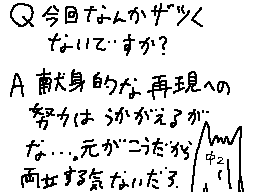 Q 今回なんかザツく
ないですか?
A 献身的な再現への
努力はうかがえるが
な…。元がこうだから
両立する気ないだろ
中2